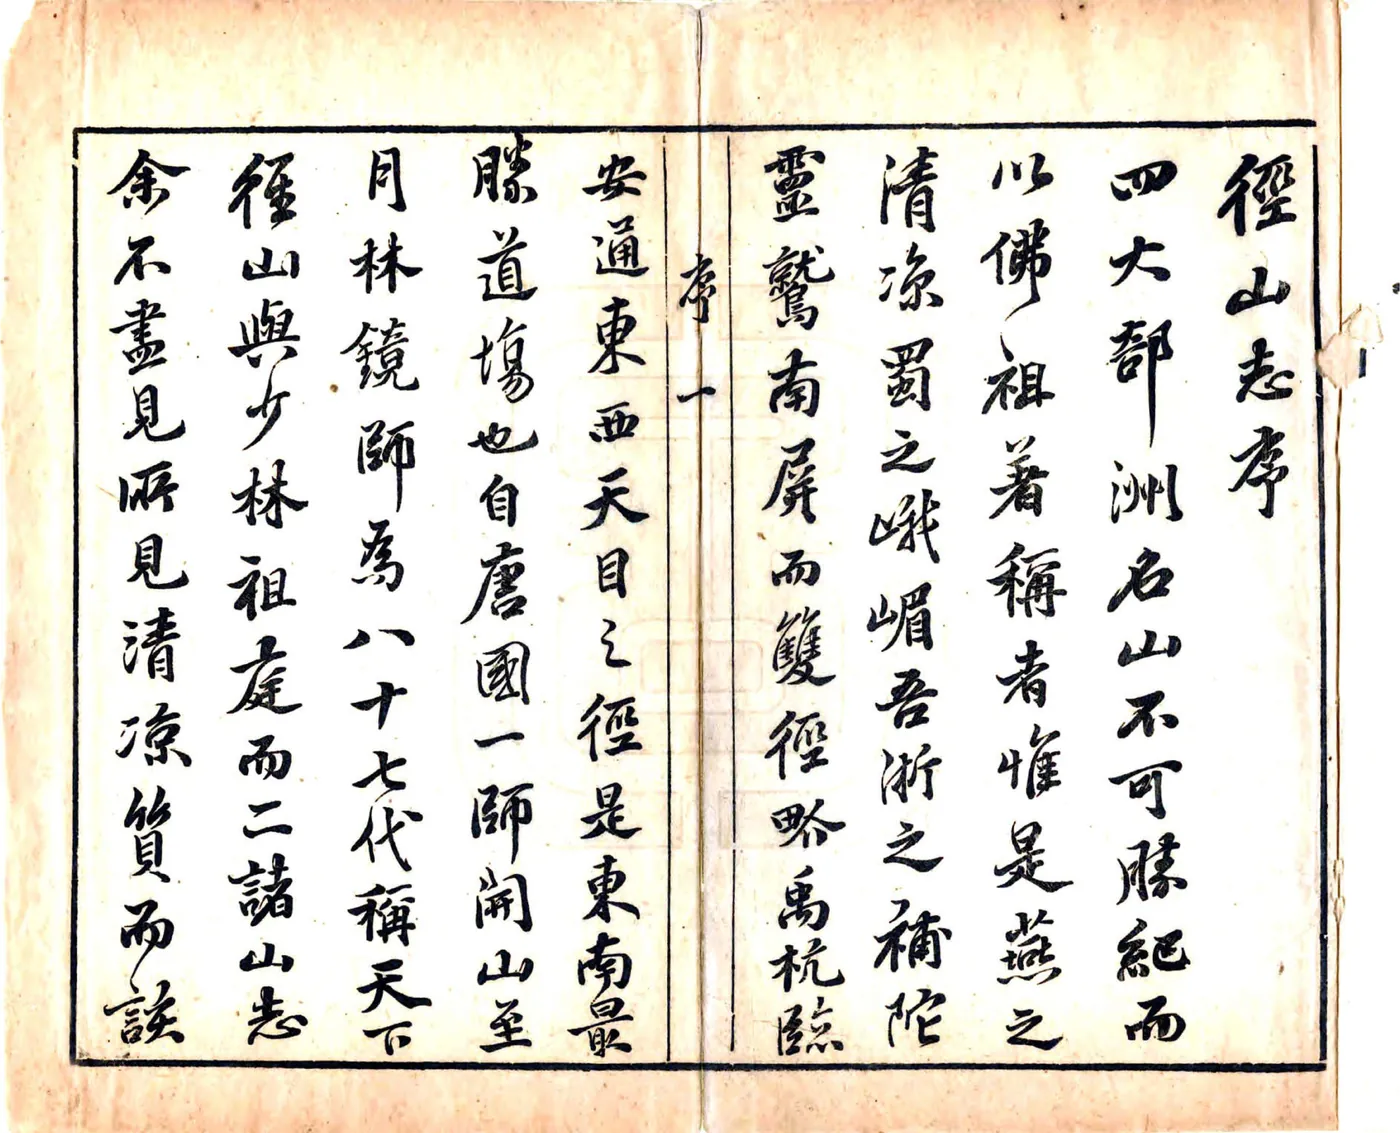 徑山志序
四大部洲名山不可勝紀而
以佛祖著稱者惟是燕之
清涼蜀之峨嵋吾浙之補陀
靈鷲南屏而雙徑略禹杭臨
序一
安通東西天目之徑是東南最
勝道場也自唐國一師開山至
月林鏡師為八十七代稱天下
徑山與少林祖庭而二諸山志
余不盡見所見清涼質而談